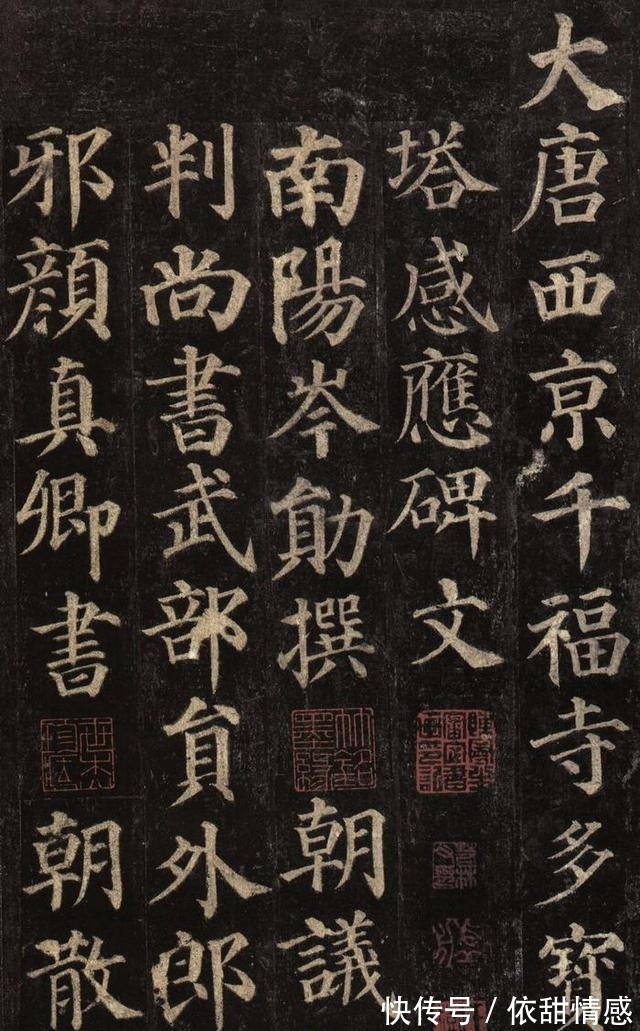 大唐西京千福寺多寶
塔感應碑文
南陽岑勛撰 朝議
判尚書武部員外郎
邪顏真卿書 朝散
快传号 / 依甜情感